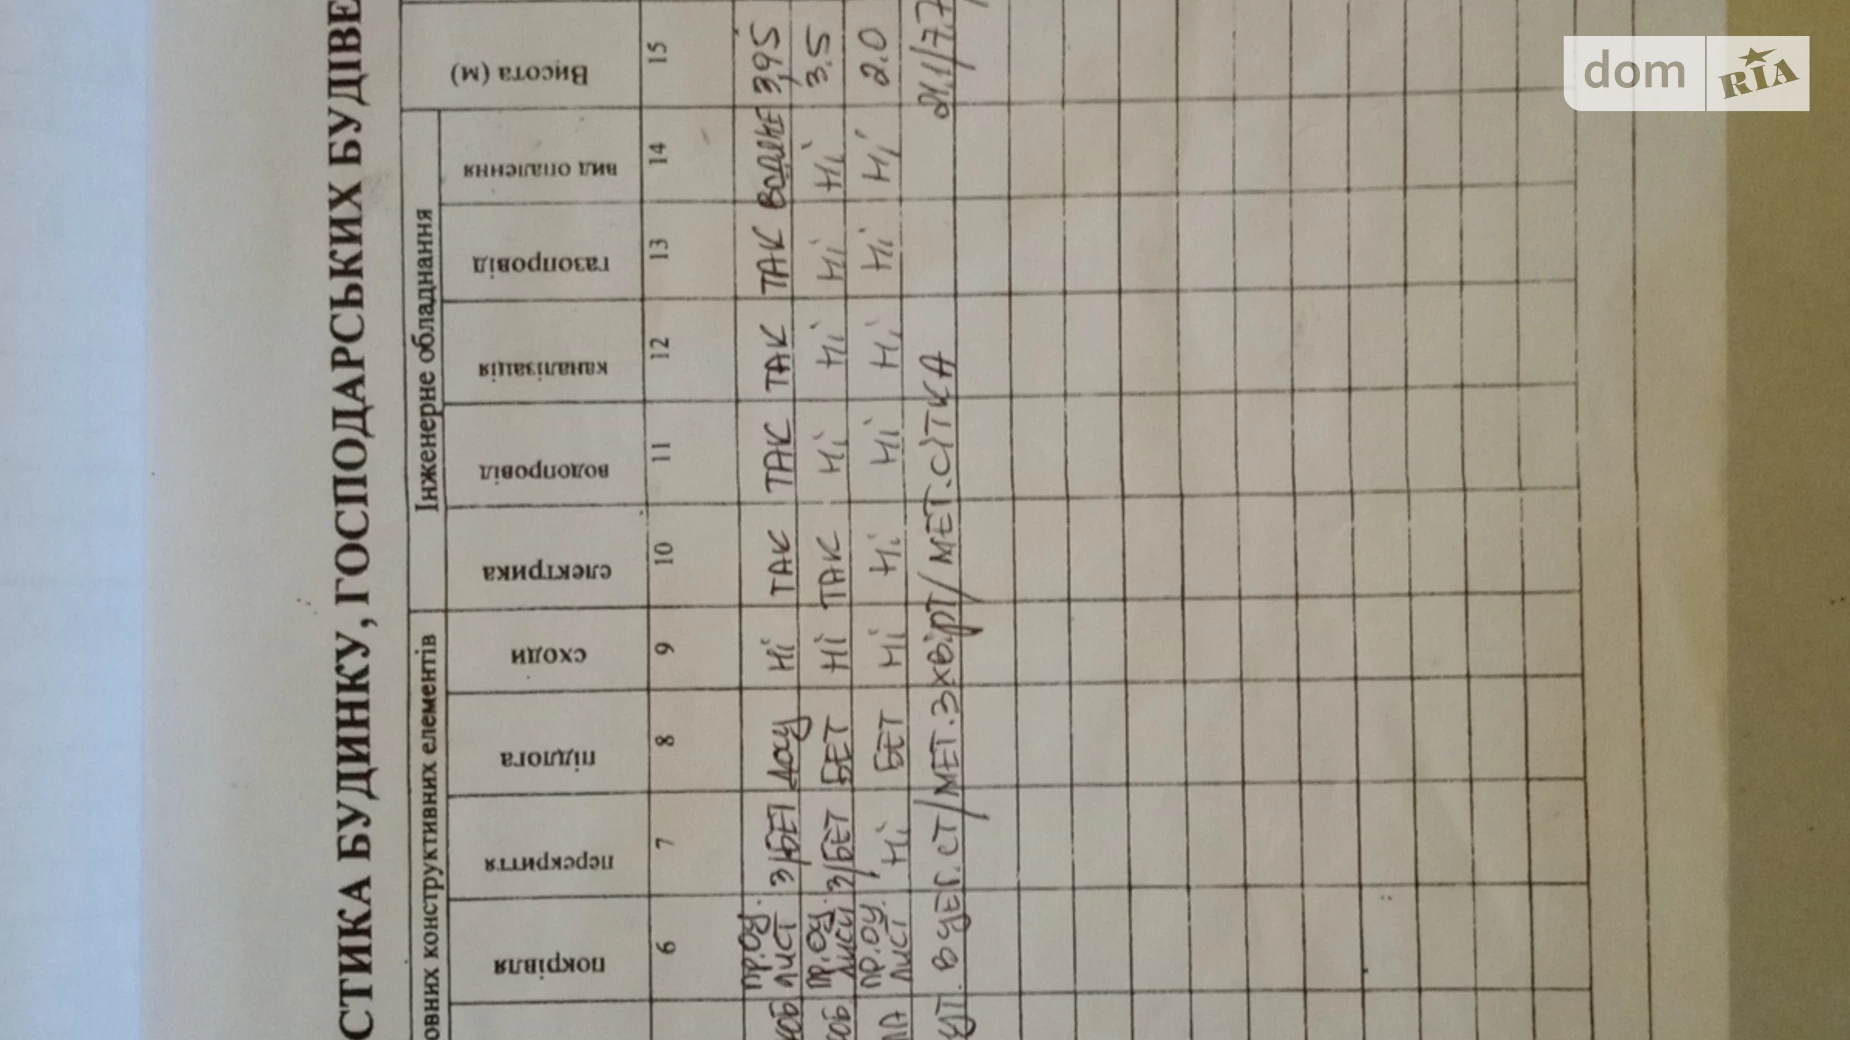 СТИКА БУДИНКУ, ГОСПОДАРСЬКИХ БУДІВЕ
овних конструктивних елементів Інженерне обладнання Висота (м)
покрівля перекриття підлога сходи електрика водопровід каналізація газопровід вид опалення
6 7 8 9 10 11 12 13 14 15
пр.оу. лист З/БЕТ ДОЩ НІ ТАК ТАК ТАК ТАК ВОДЯНЕ 3,95
пр.оу. лист З/БЕТ БЕТ НІ ТАК НІ НІ НІ НІ 3.5
пр.оу. лист НІ БЕТ НІ НІ НІ НІ НІ НІ 2.0
СТ/МЕТ.ЗХВІРТ/МЕТ.СІТКА 21,1/7,7
dom RIA